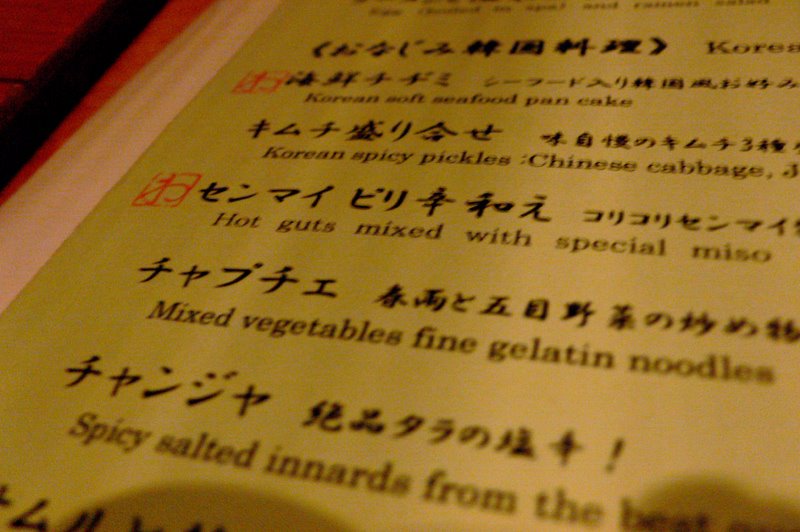 Egg (boiled in spa) and ramen salad
《おなじみ韓国料理》 Korea
お 海鮮チヂミ シーフード入り韓国風お好み
Korean soft seafood pan cake
キムチ盛り合せ 味自慢のキムチ3種
Korean spicy pickles :Chinese cabbage, J
お センマイピリ辛和え コリコリセンマイ
Hot guts mixed with special miso
チャプチェ 春雨と五目野菜の炒め物
Mixed vegetables fine gelatin noodles
チャンジャ 絶品タラの塩辛！
Spicy salted innards from the best